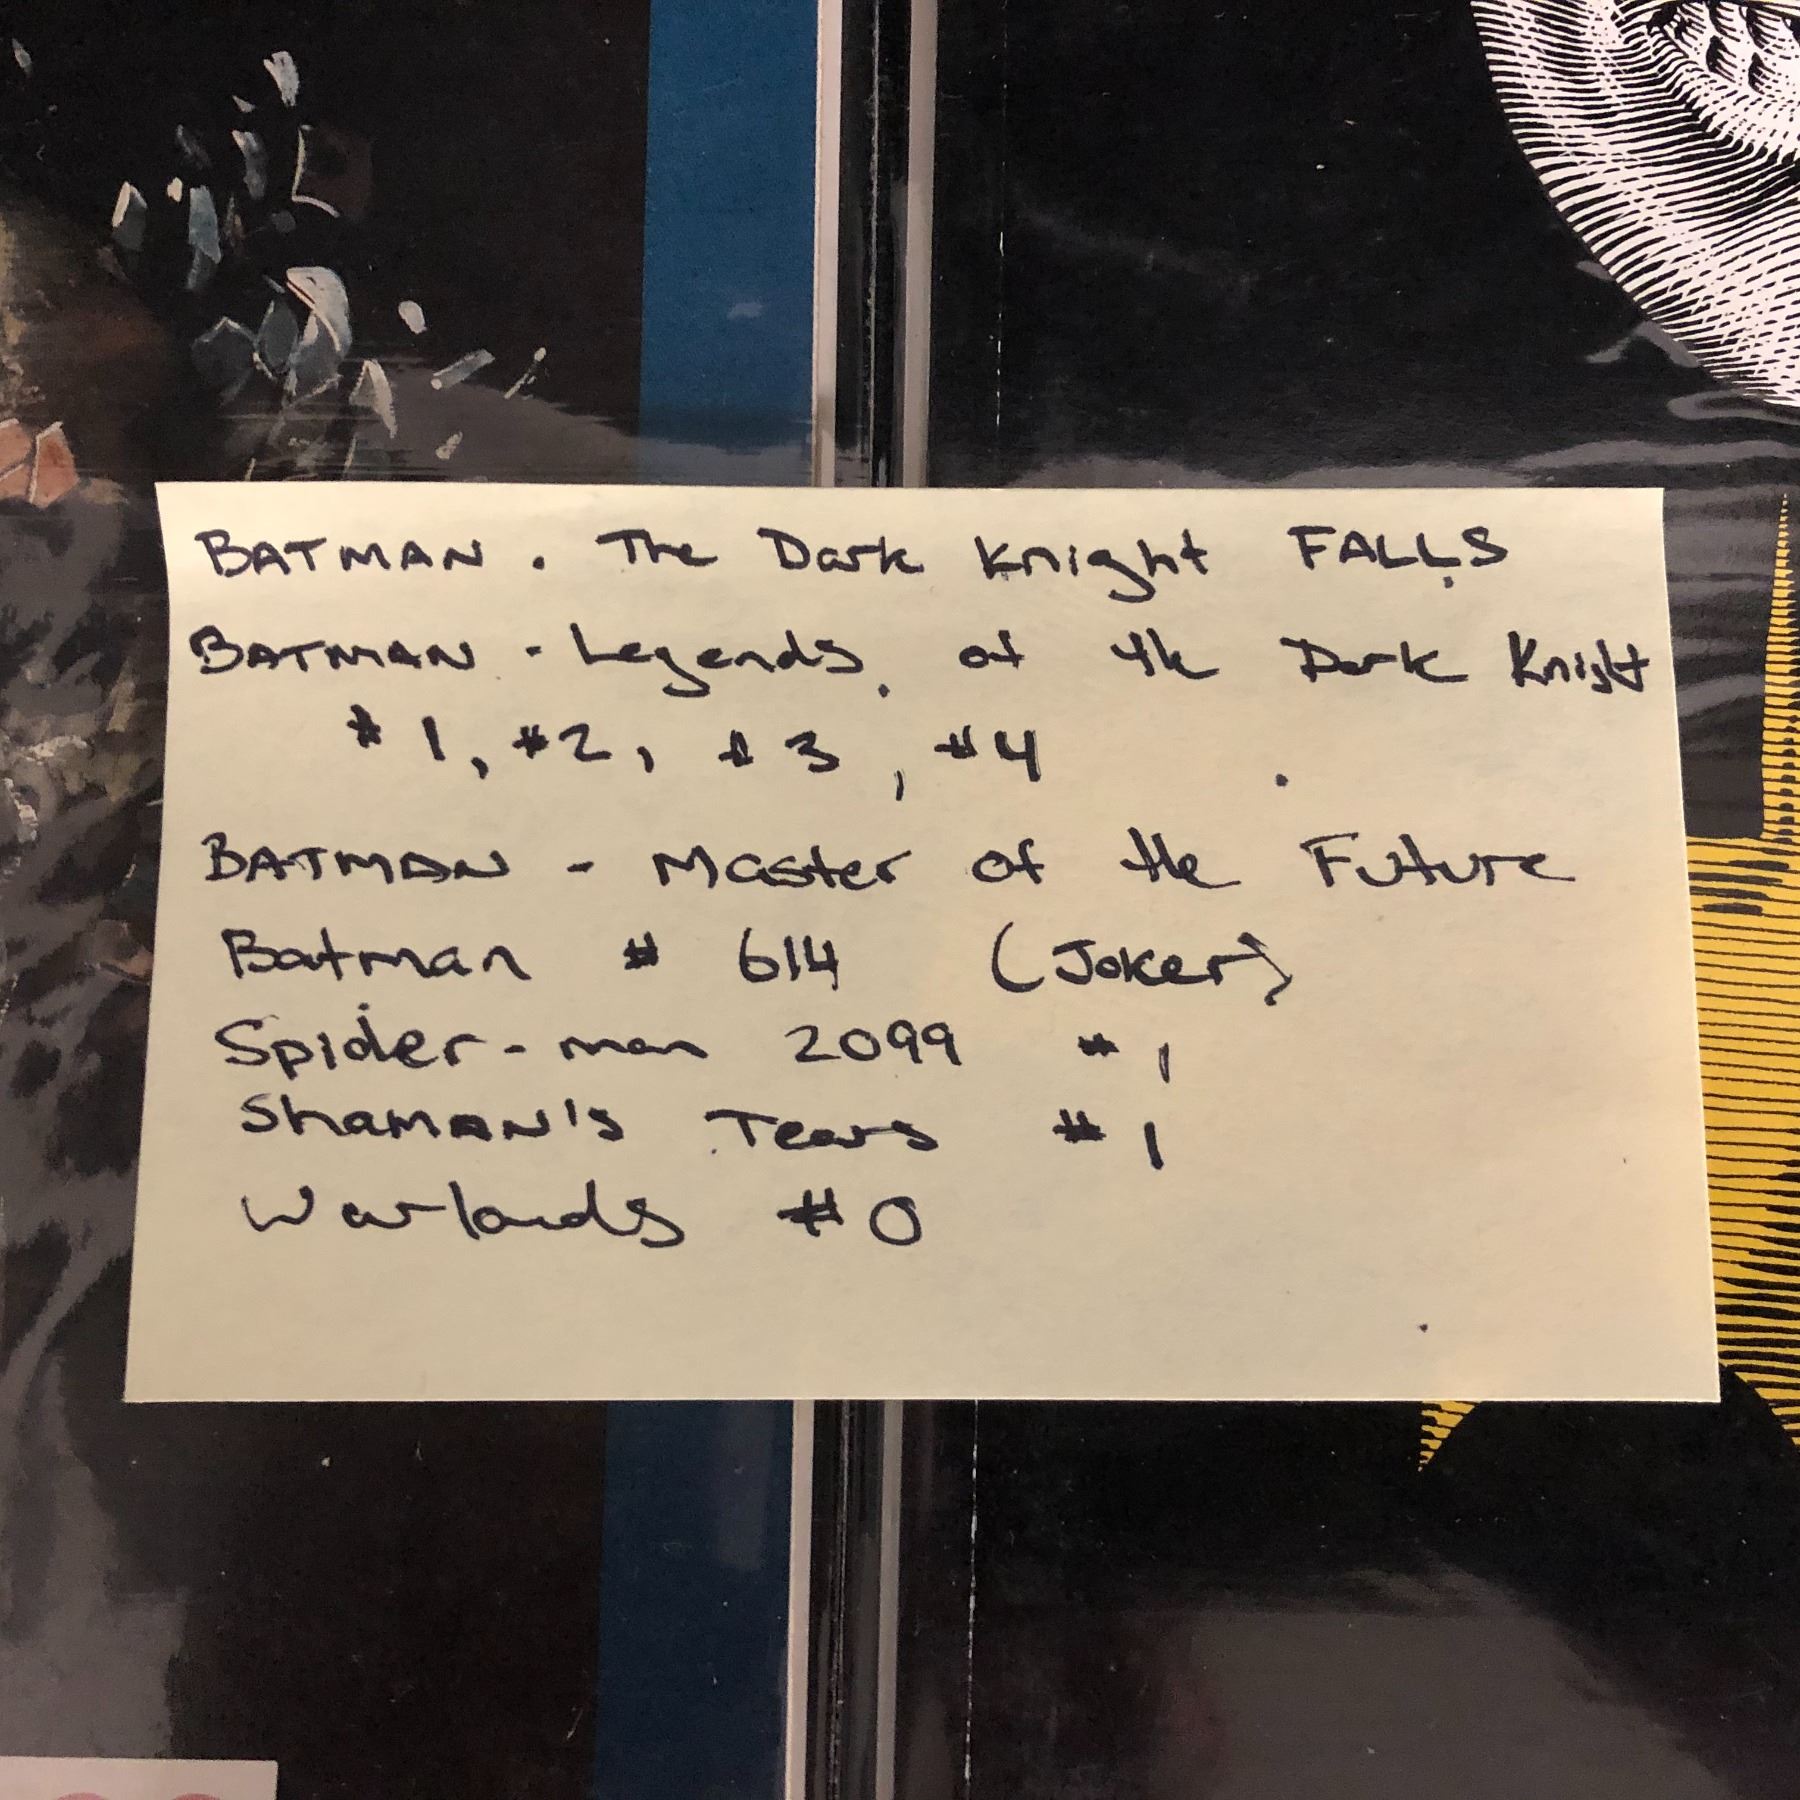 BATMAN. The Dark Knight FALLS
BATMAN - Legends of the Dark Knight
#1, #2, #3, #4
BATMAN - Master of the Future
Batman # 614 (Joker)
Spider-man 2099 #1
Shaman's Tears #1
Warlands #0